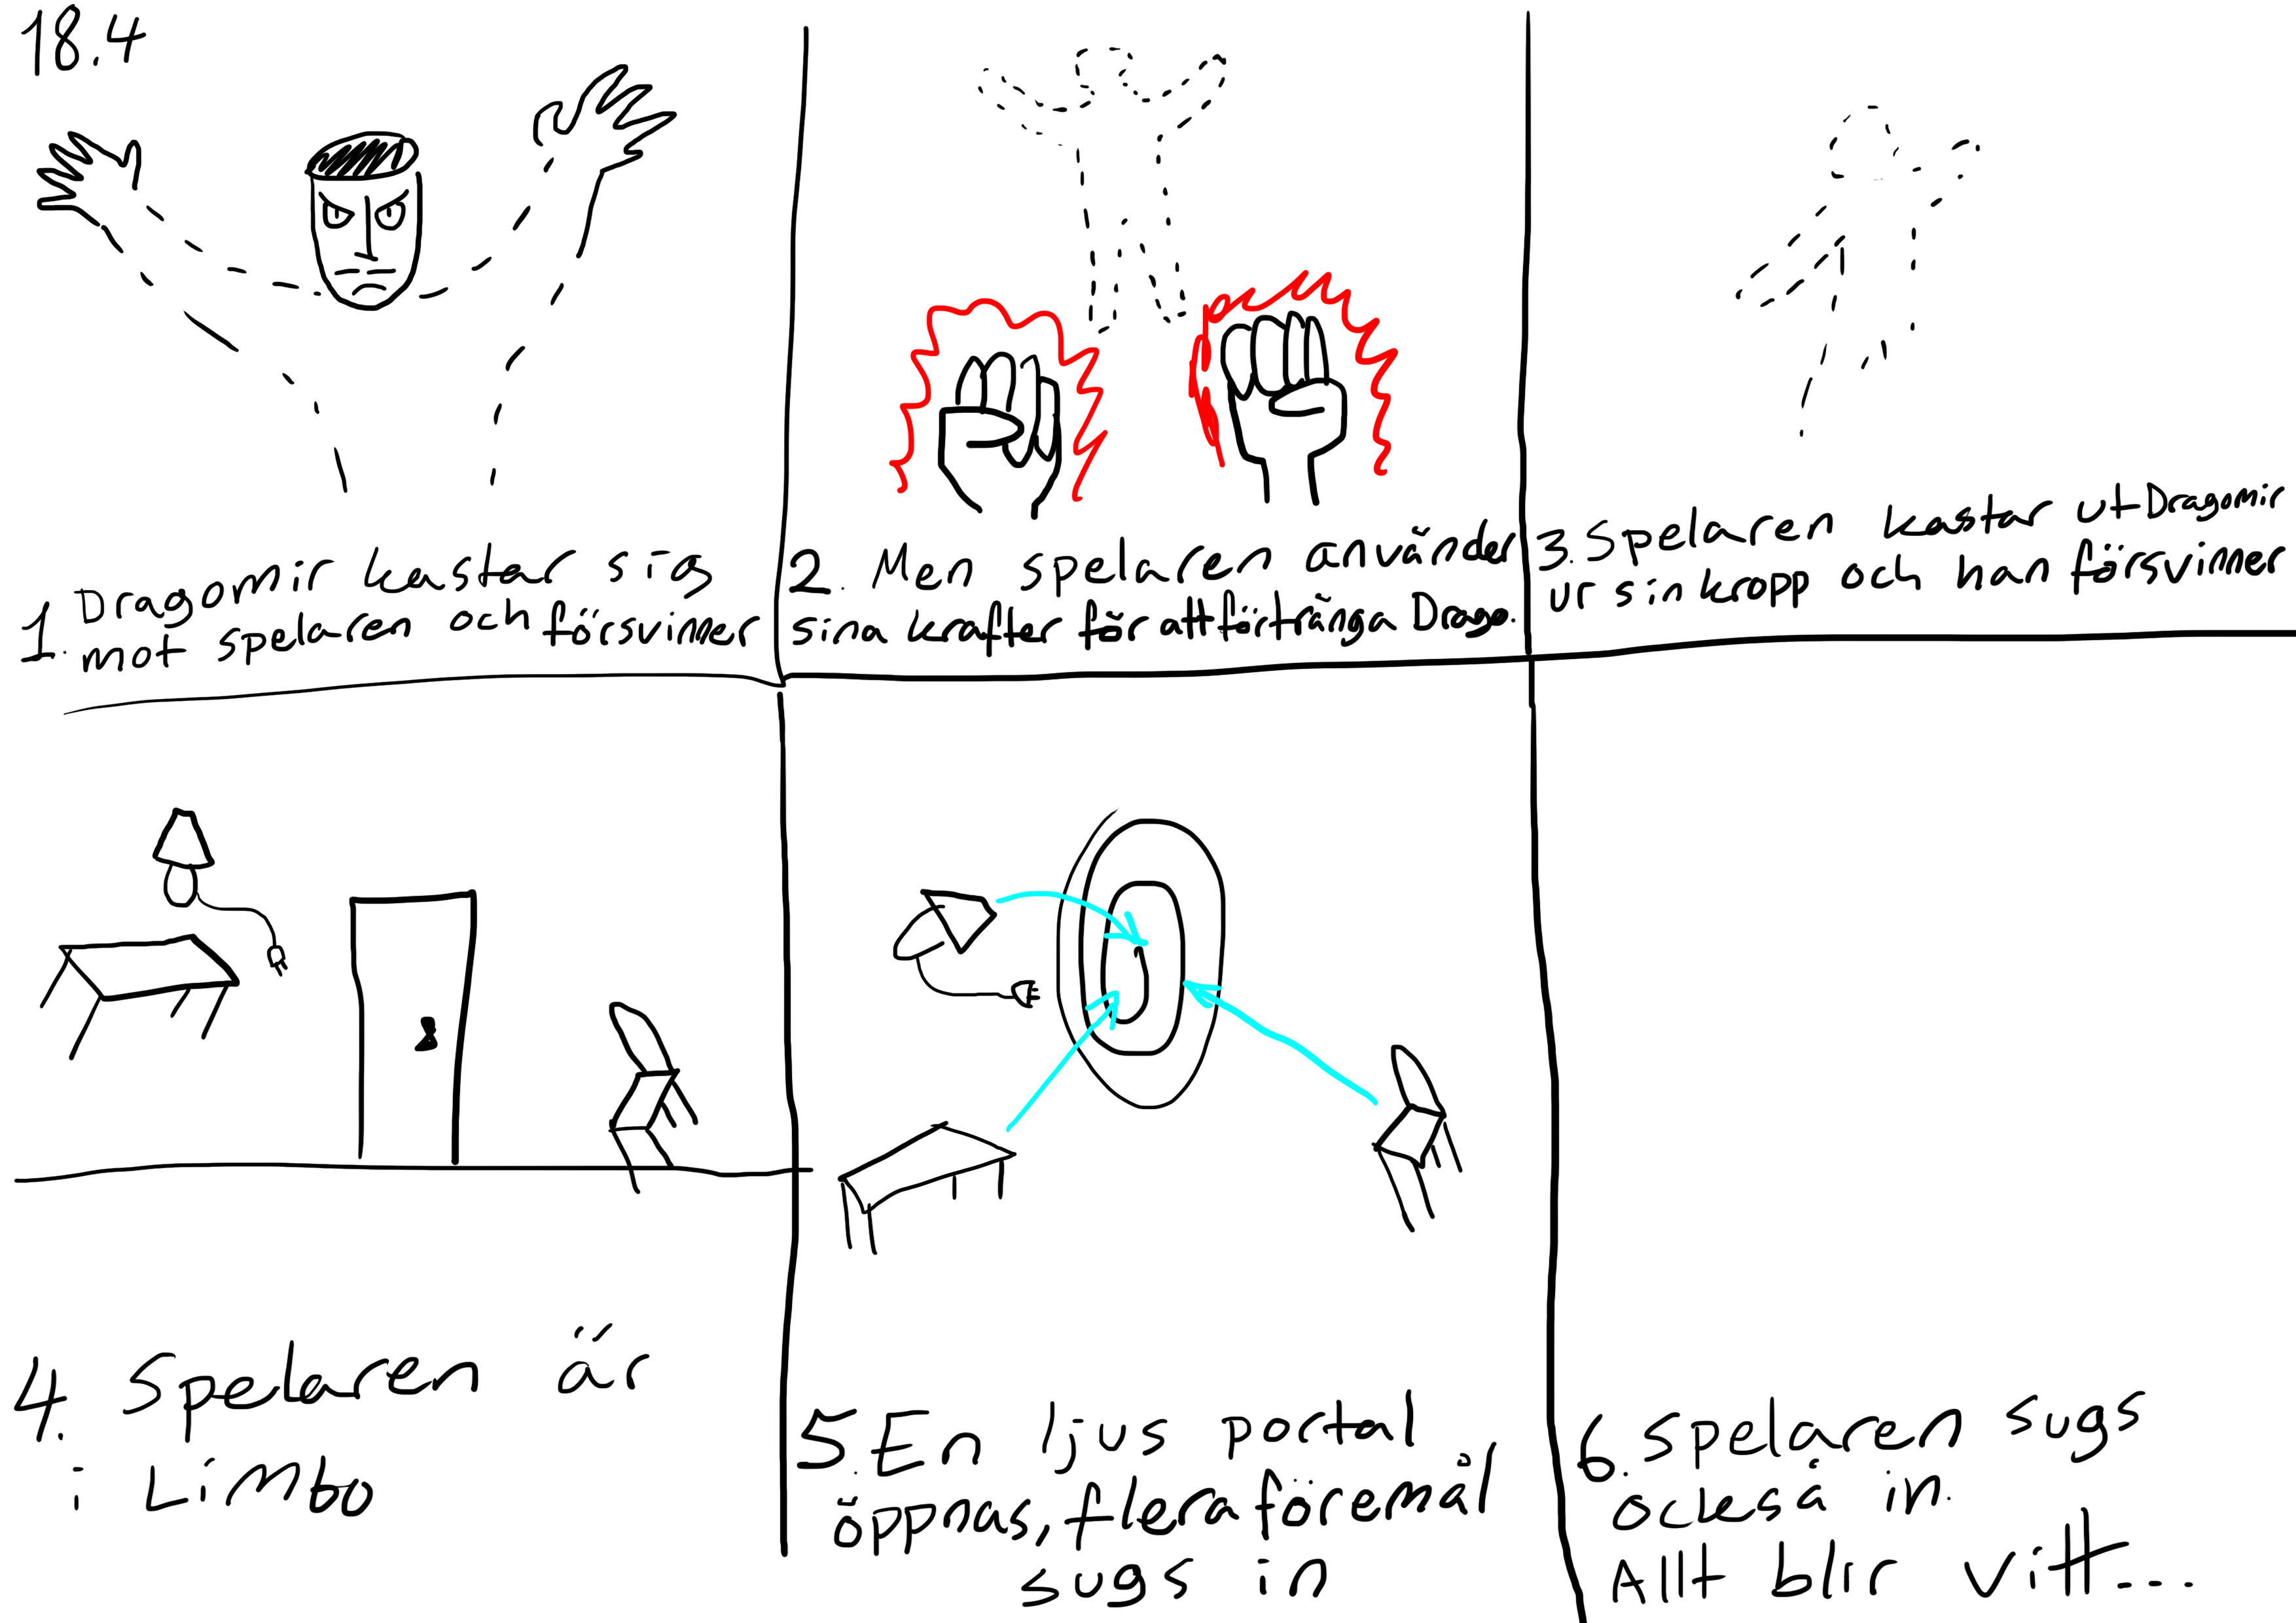 18.4
1. Dragomir kastar sig
mot spelaren och försvinner
2. Men spelaren använder
sina krafter för att förtränga Drago.
3. Spelaren kastar ut Dragomir
ur sin kropp och han försvinner
4. Spelaren är
i Limbo
5. En ljus portal
öppnas, flera föremål
sugs in
6. Spelaren sugs
också in.
Allt blir vitt...